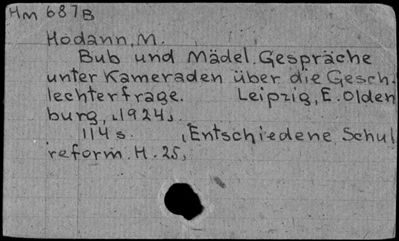 Hm 687B
Hodann, M.
Bub und Mädel. Gespräche
unter Kameraden über die Gesch-
lechterfrage. Leipzig, E. Olden
burg, [1924].
114 s. [Entschiedene Schul
reform. H. 25]